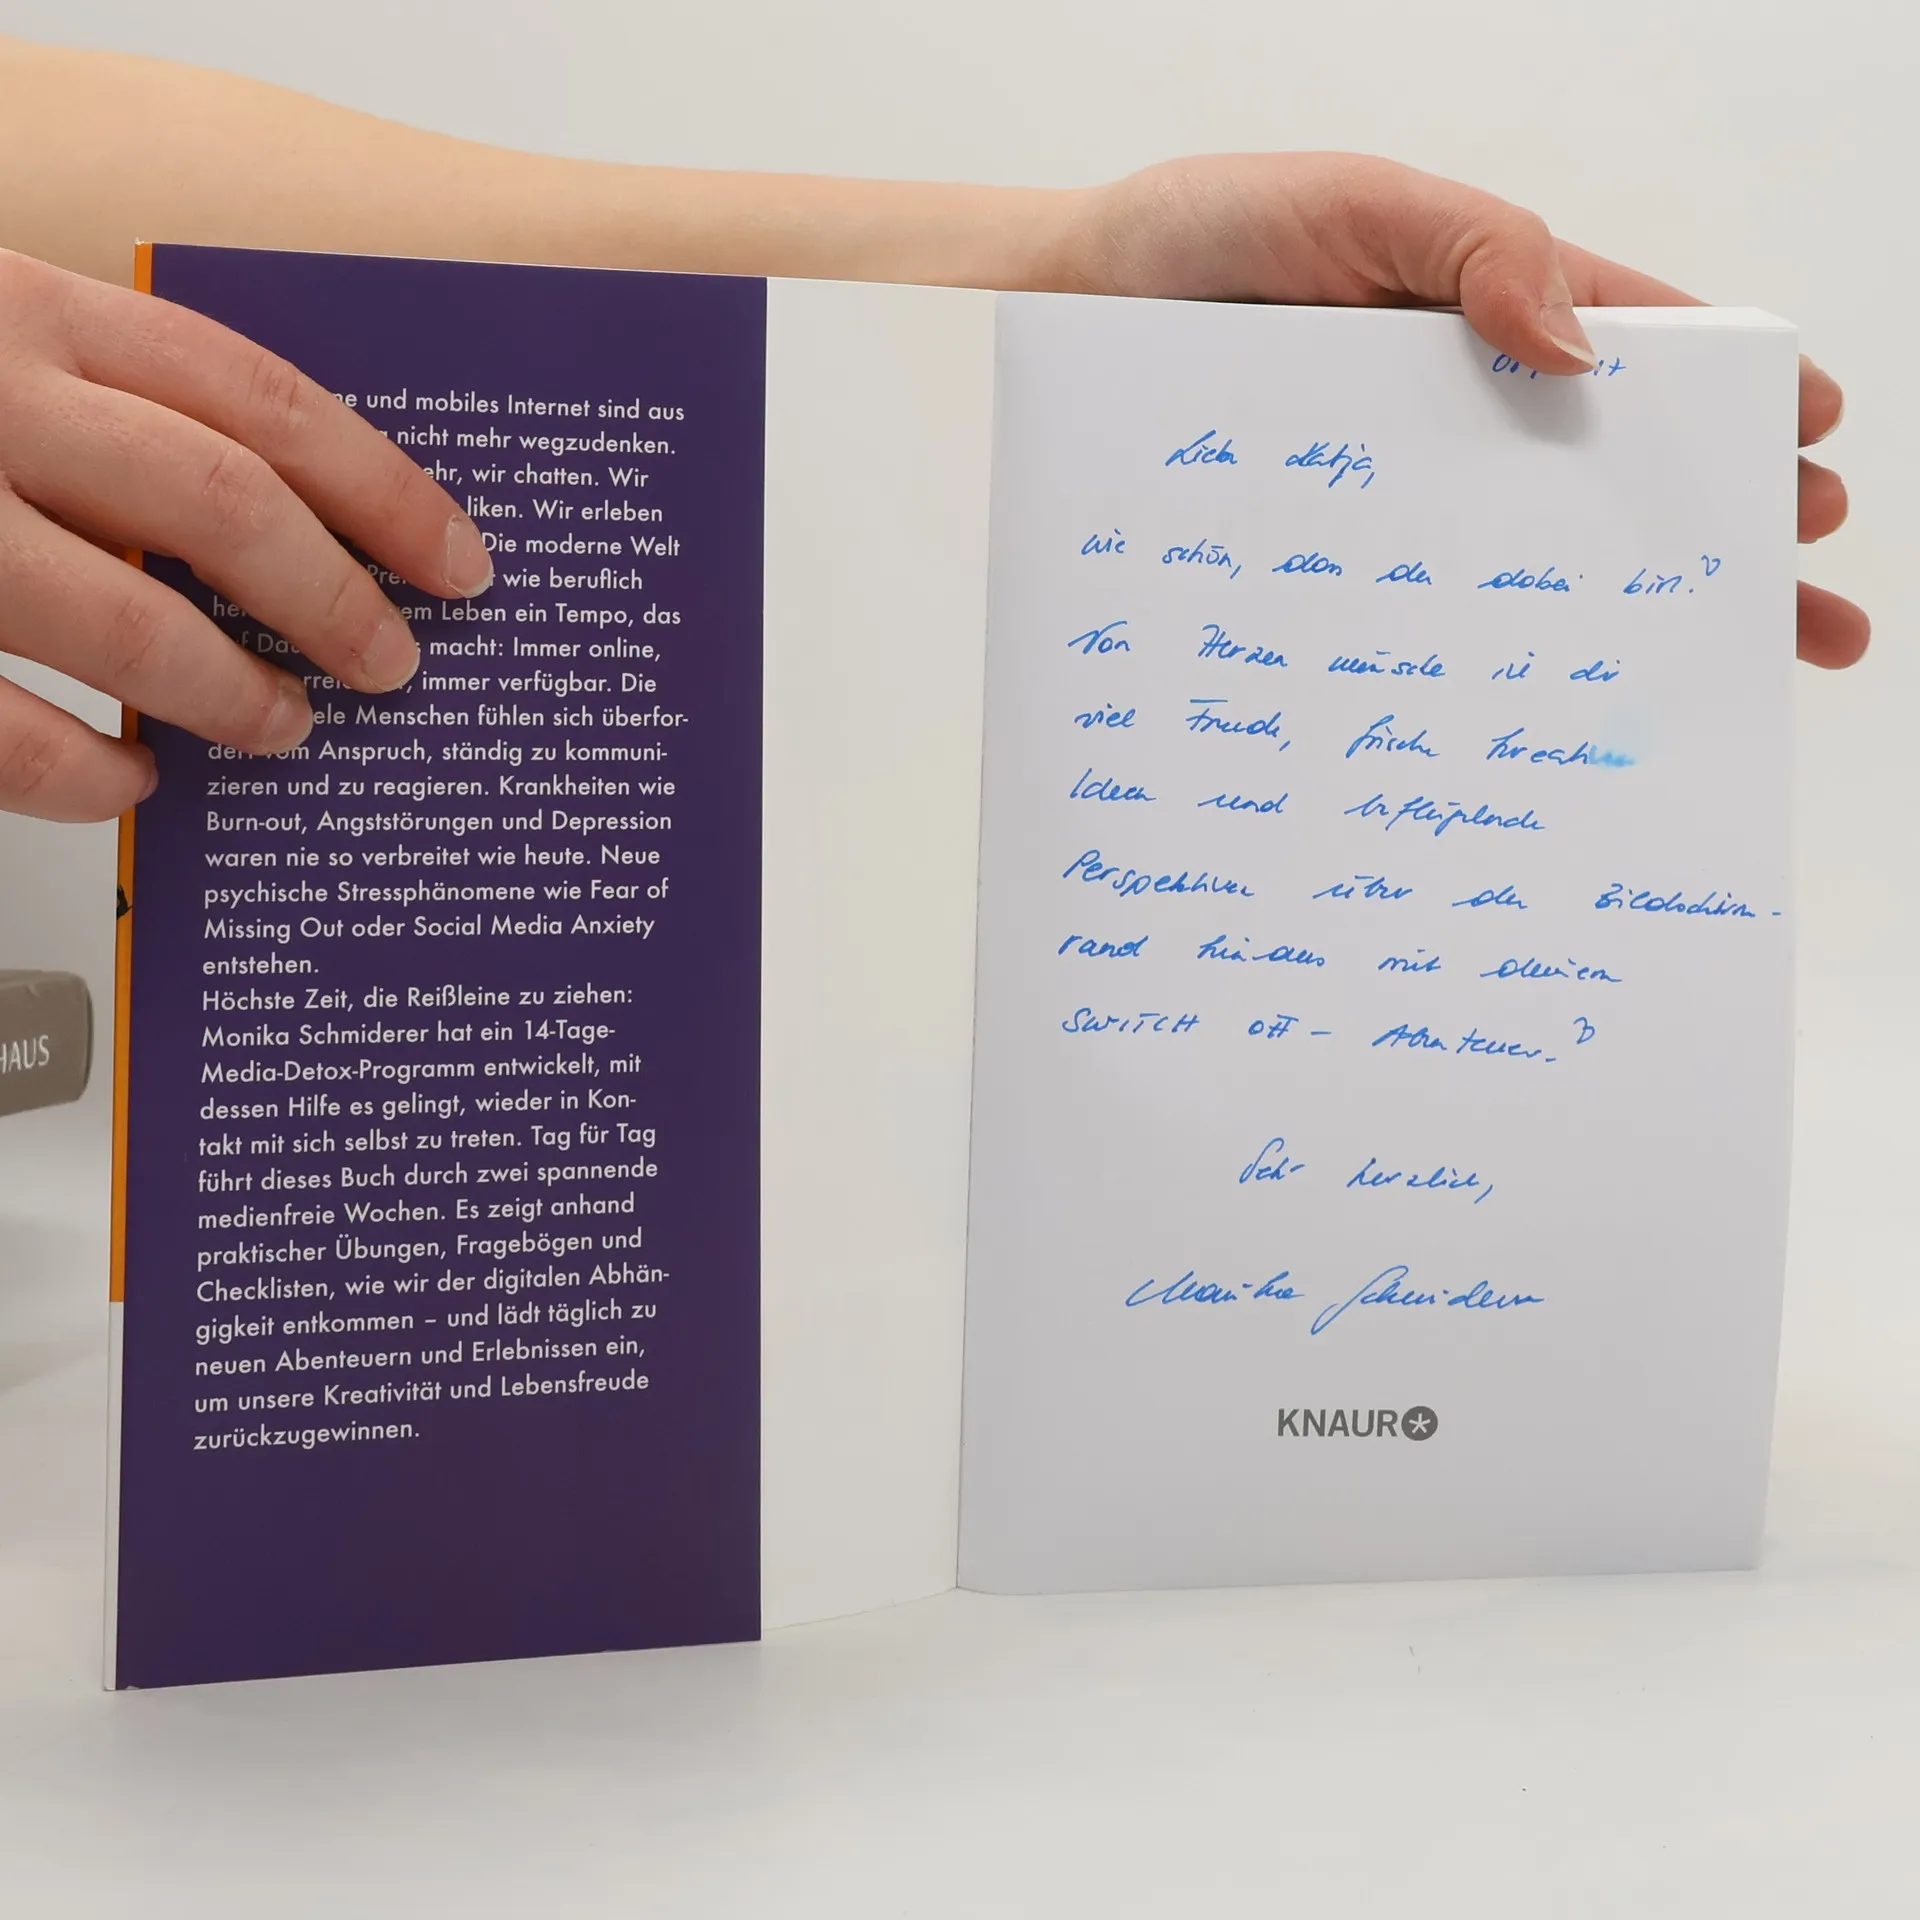 HAUS
und mobiles Internet sind aus
nicht mehr wegzudenken.
wir chatten. Wir
liken. Wir erleben
Die moderne Welt
wie beruflich
Leben ein Tempo, das
macht: Immer online,
immer verfügbar. Die
Menschen fühlen sich überfor-
Anspruch, ständig zu kommuni-
zieren und zu reagieren. Krankheiten wie
Burn-out, Angststörungen und Depression
waren nie so verbreitet wie heute. Neue
psychische Stressphänomene wie Fear of
Missing Out oder Social Media Anxiety
entstehen.
Höchste Zeit, die Reißleine zu ziehen:
Monika Schmiderer hat ein 14-Tage-
Media-Detox-Programm entwickelt, mit
dessen Hilfe es gelingt, wieder in Kon-
takt mit sich selbst zu treten. Tag für Tag
führt dieses Buch durch zwei spannende
medienfreie Wochen. Es zeigt anhand
praktischer Übungen, Fragebögen und
Checklisten, wie wir der digitalen Abhän-
gigkeit entkommen – und lädt täglich zu
neuen Abenteuern und Erlebnissen ein,
um unsere Kreativität und Lebensfreude
zurückzugewinnen.
Liebe Katja,
wie schön, dass du dabei bist!
Von Herzen wünsche ich dir
viel Freude, frische kreative
Ideen und beflügelnde
Perspektiven über den Bildschirm-
rand hinaus mit deinem
SWITCH OFF - Abenteuer.
Sehr herzlich,
Monika Schmiderer
KNAUR